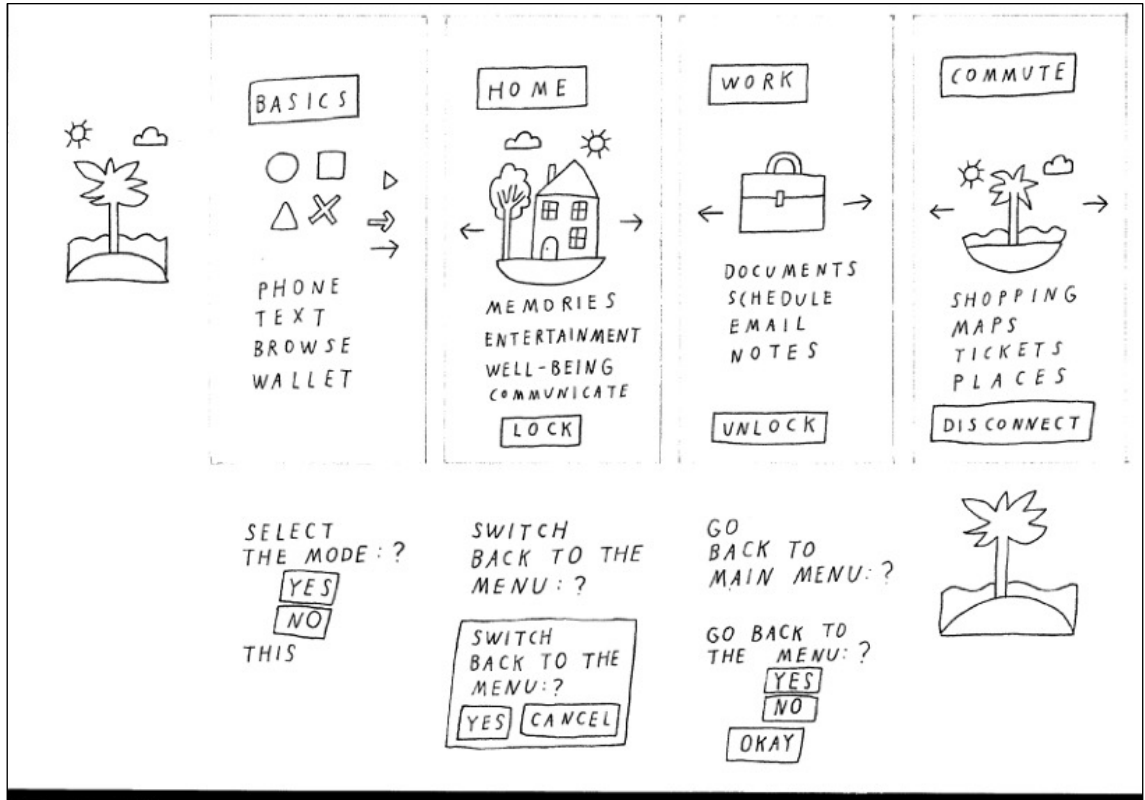 BASICS
PHONE
TEXT
BROWSE
WALLET
HOME
MEMORIES
ENTERTAINMENT
WELL-BEING
COMMUNICATE
LOCK
WORK
DOCUMENTS
SCHEDULE
EMAIL
NOTES
UNLOCK
COMMUTE
SHOPPING
MAPS
TICKETS
PLACES
DISCONNECT
SELECT
THE MODE:?
YES
NO
THIS
SWITCH
BACK TO THE
MENU:?
SWITCH
BACK TO THE
MENU:?
YES CANCEL
GO
BACK TO
MAIN MENU:?
GO BACK TO
THE MENU:?
YES
NO
OKAY